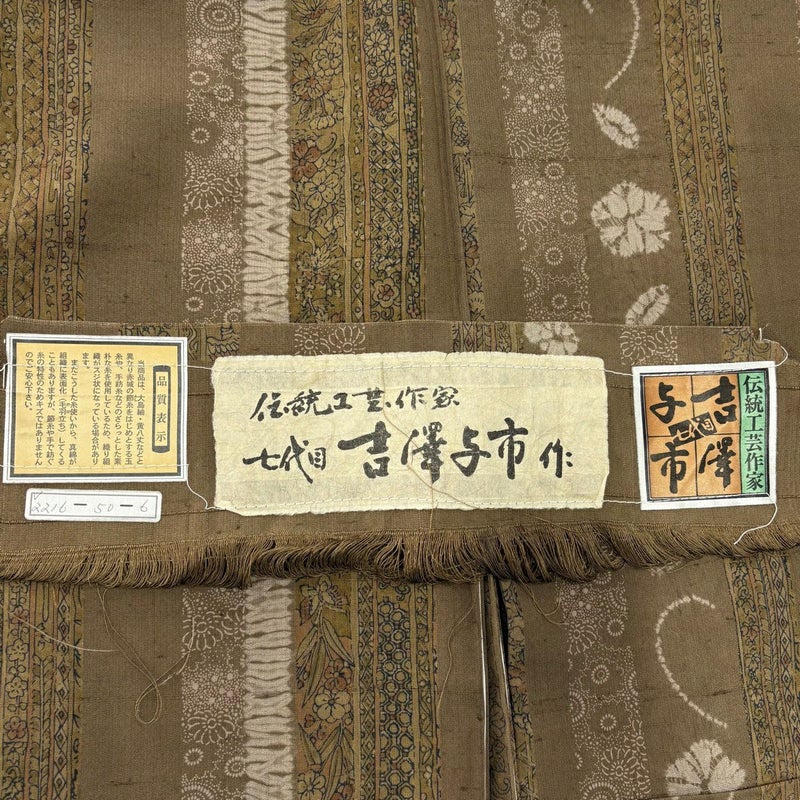 品質表示
当商品は、大島紬・黄八丈などと
異なり赤城の節糸をはじめとする玉
糸や、手紡糸などのざらっとした素
朴な糸を使用しているため、織り組
織がスジ状になっている場合があり
ます。
またこうした糸使いから、真綿が
組織に表面化（毛羽立ち）してくる
こともありますが、節糸や手で紡ぐ
糸の特性のためキズではありません
のでご安心下さい。
2216-50-6
伝統工芸作家
七代目 吉澤与市 作
伝統工芸作家
吉澤
七代目
与市